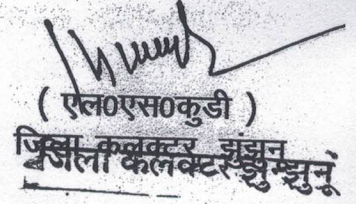 ( एल0एस0कुडी )
जिला कलक्टर झुंझुनू
जिला कलक्टर झुन्झुनूं